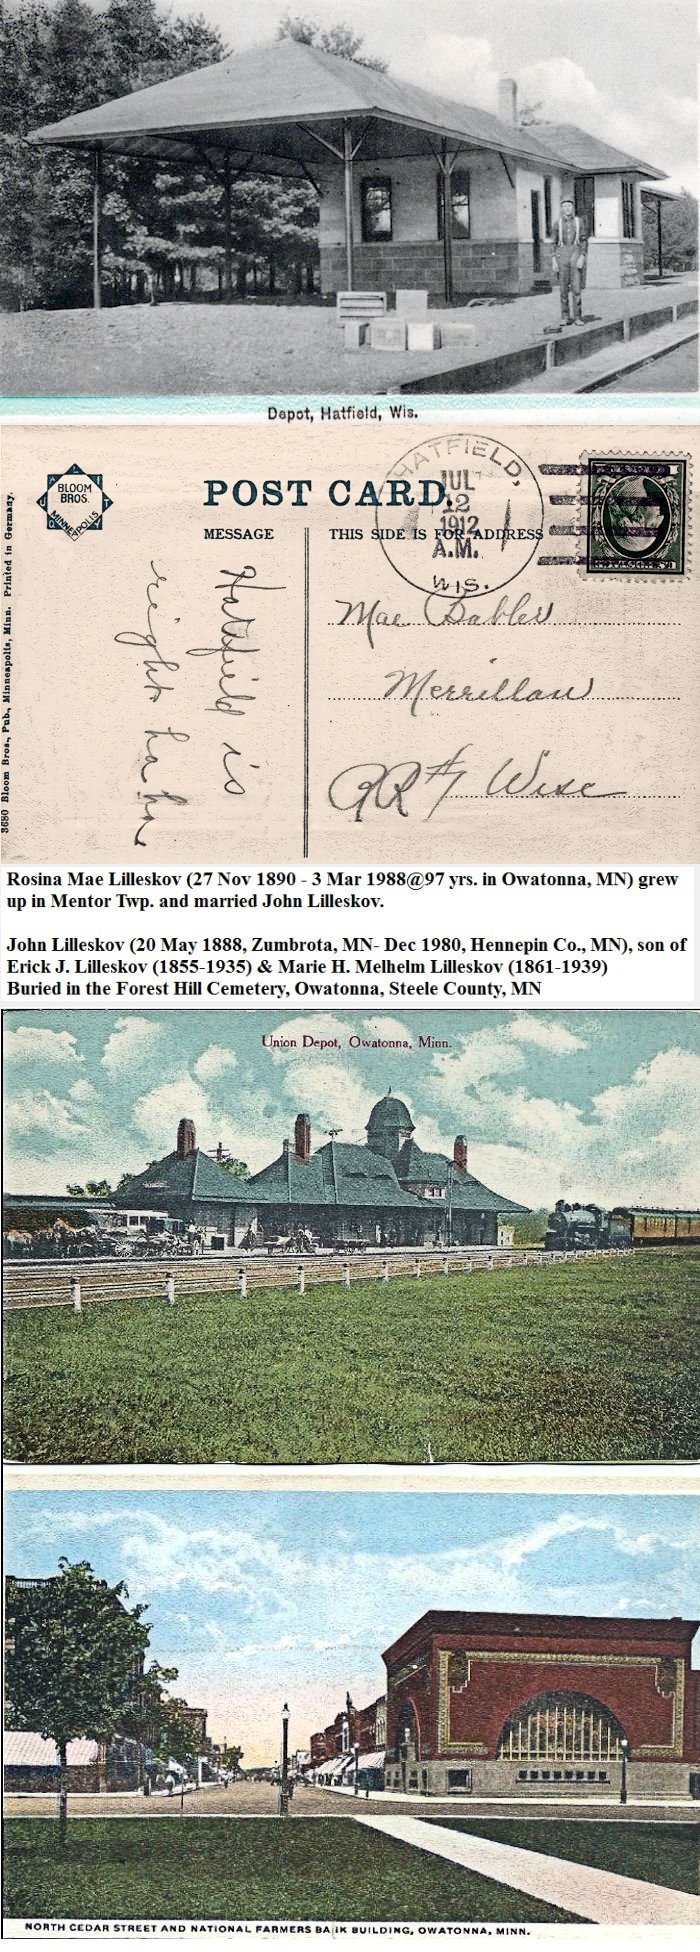 Depot, Hatfield, Wis.
BLOOM
BROS.
MINNEAPOLIS
POST CARD.
HATFIELD,
JUL
12
1912
A.M.
WIS.
MESSAGE
THIS SIDE IS FOR ADDRESS
3680 Bloom Bros., Pub., Minneapolis, Minn. Printed in Germany.
Hatfield is
right ha ha
Mae Babler
Merrillan
RR #1 Wisc
Rosina Mae Lilleskov (27 Nov 1890 - 3 Mar 1988@97 yrs. in Owatonna, MN) grew
up in Mentor Twp. and married John Lilleskov.
John Lilleskov (20 May 1888, Zumbrota, MN- Dec 1980, Hennepin Co., MN), son of
Erick J. Lilleskov (1855-1935) & Marie H. Melhelm Lilleskov (1861-1939)
Buried in the Forest Hill Cemetery, Owatonna, Steele County, MN
Union Depot, Owatonna, Minn.
NORTH CEDAR STREET AND NATIONAL FARMERS BANK BUILDING, OWATONNA, MINN.